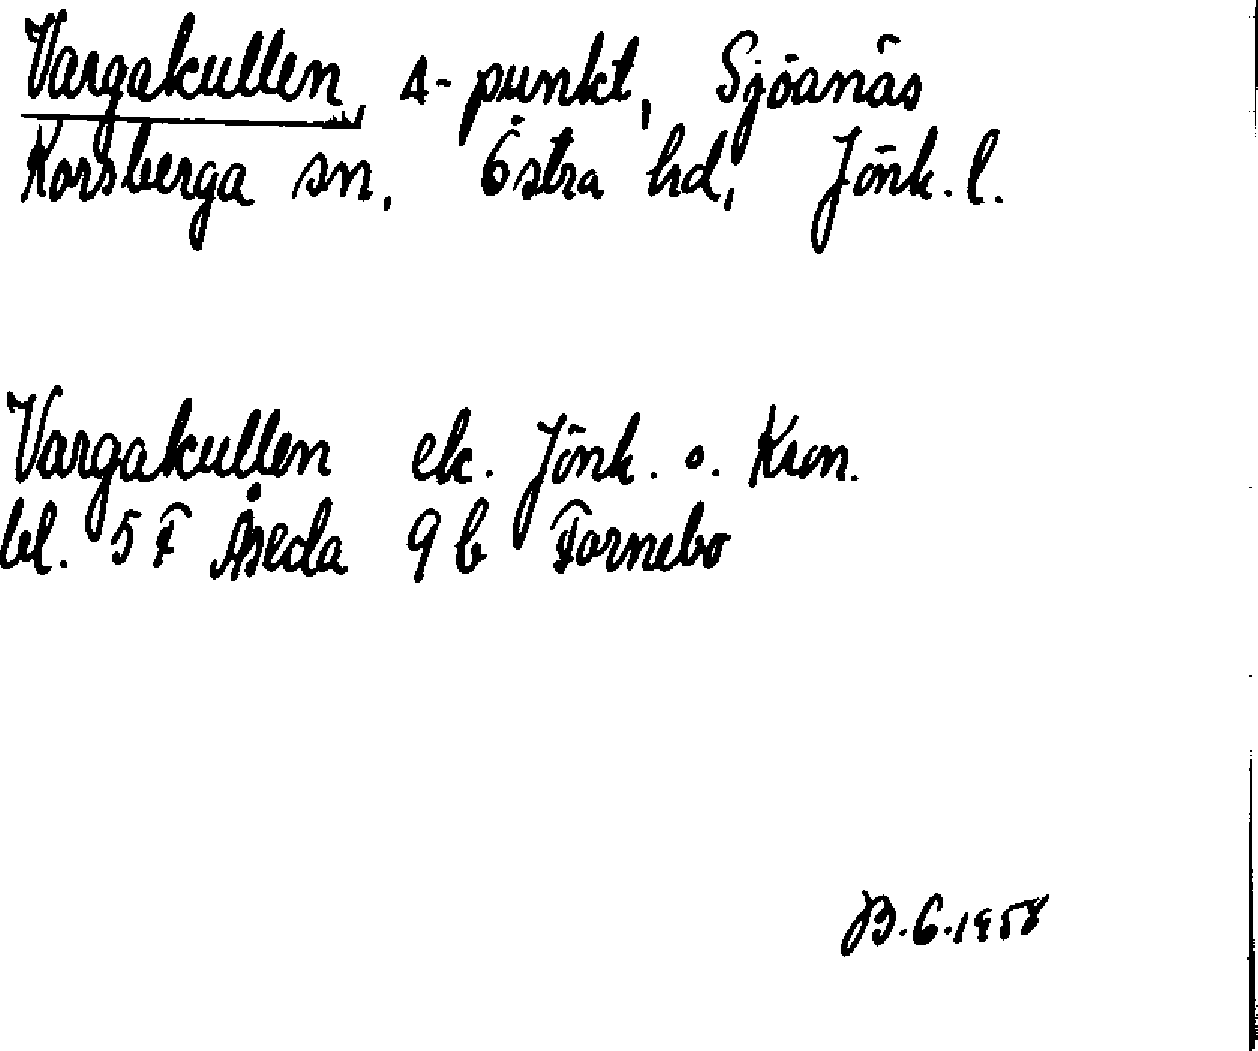 Vargakullen, Δ-punkt, Sjöanäs
Korsberga sn, Östra hd, Jönk. l.
Vargakullen ek. Jönk. o. Kron.
bl. 5 F Åseda 9 b Fornebo
B.G. 1958